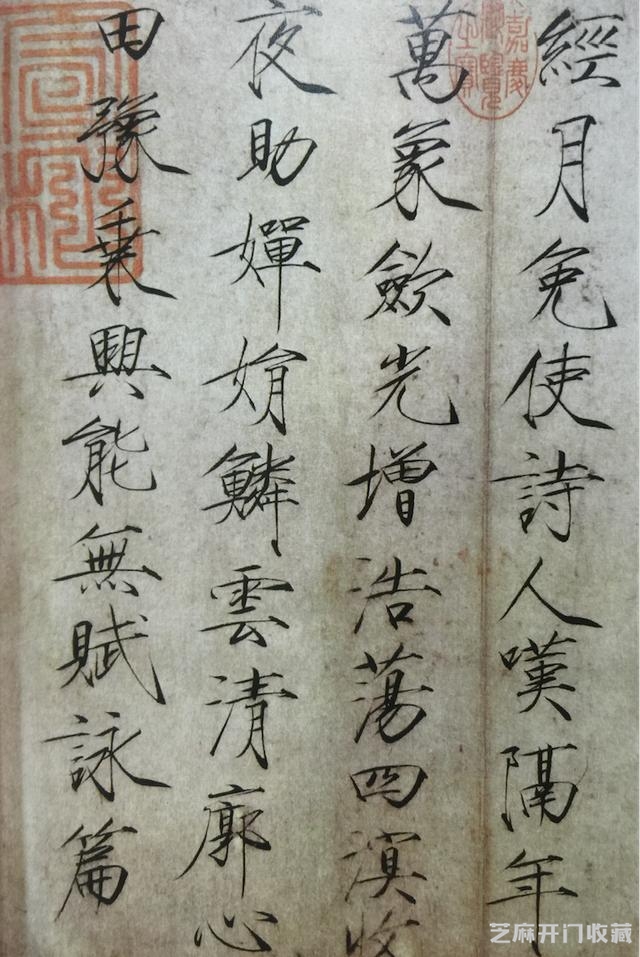 經月免使詩人嘆隔年
萬象歛光增浩蕩四溟收
夜助嬋娟鱗雲清廓心
田豫乗興能無賦詠篇
嘉慶御覽之寶
芝麻开门收藏